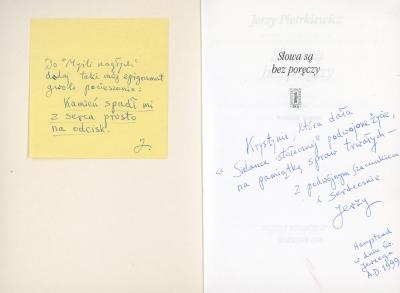 Do "Myśli nagłych"
dodaj taki mój epigramat
gwoli pocieszenia:
Kamień spadł mi
z serca prosto
na odcisk.
J.
Jerzy Pietrkiewicz
Słowa są
bez poręczy
Krystynie, która dała
"Sielance stołecznej" podwójne życie,
na pamiątkę spraw trwałych –
z podwójnym szacunkiem
i serdecznie
Jerzy
Hampstead
w dniu św.
Jerzego
A.D. 1999